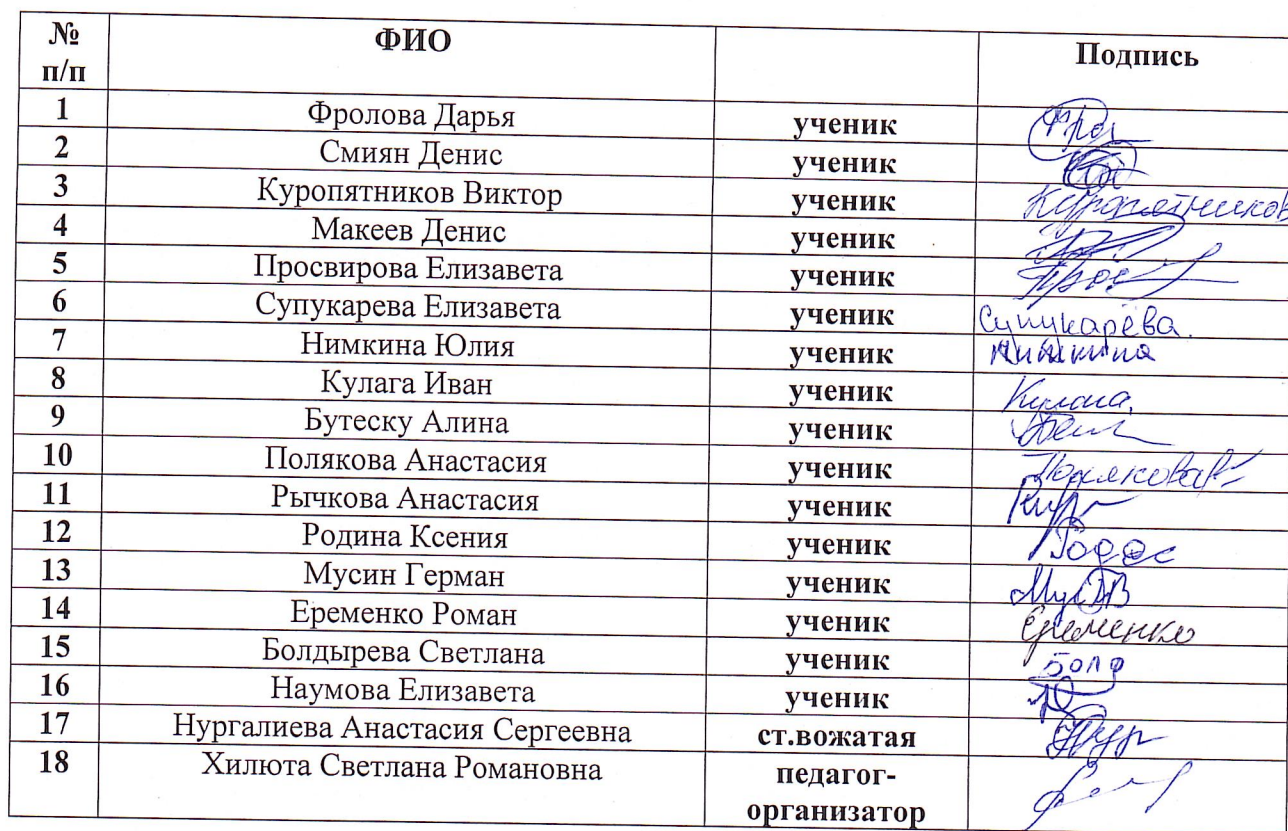 № п/п ФИО Подпись
1 Фролова Дарья ученик Фрол
2 Смиян Денис ученик
3 Куропятников Виктор ученик Куропятников
4 Макеев Денис ученик
5 Просвирова Елизавета ученик Прос
6 Супукарева Елизавета ученик Супукарёва.
7 Нимкина Юлия ученик Нимкина
8 Кулага Иван ученик Кулага.
9 Бутеску Алина ученик
10 Полякова Анастасия ученик Полякова
11 Рычкова Анастасия ученик
12 Родина Ксения ученик
13 Мусин Герман ученик
14 Еременко Роман ученик Еременко
15 Болдырева Светлана ученик Болд
16 Наумова Елизавета ученик
17 Нургалиева Анастасия Сергеевна ст.вожатая Нур
18 Хилюта Светлана Романовна педагог-
организатор